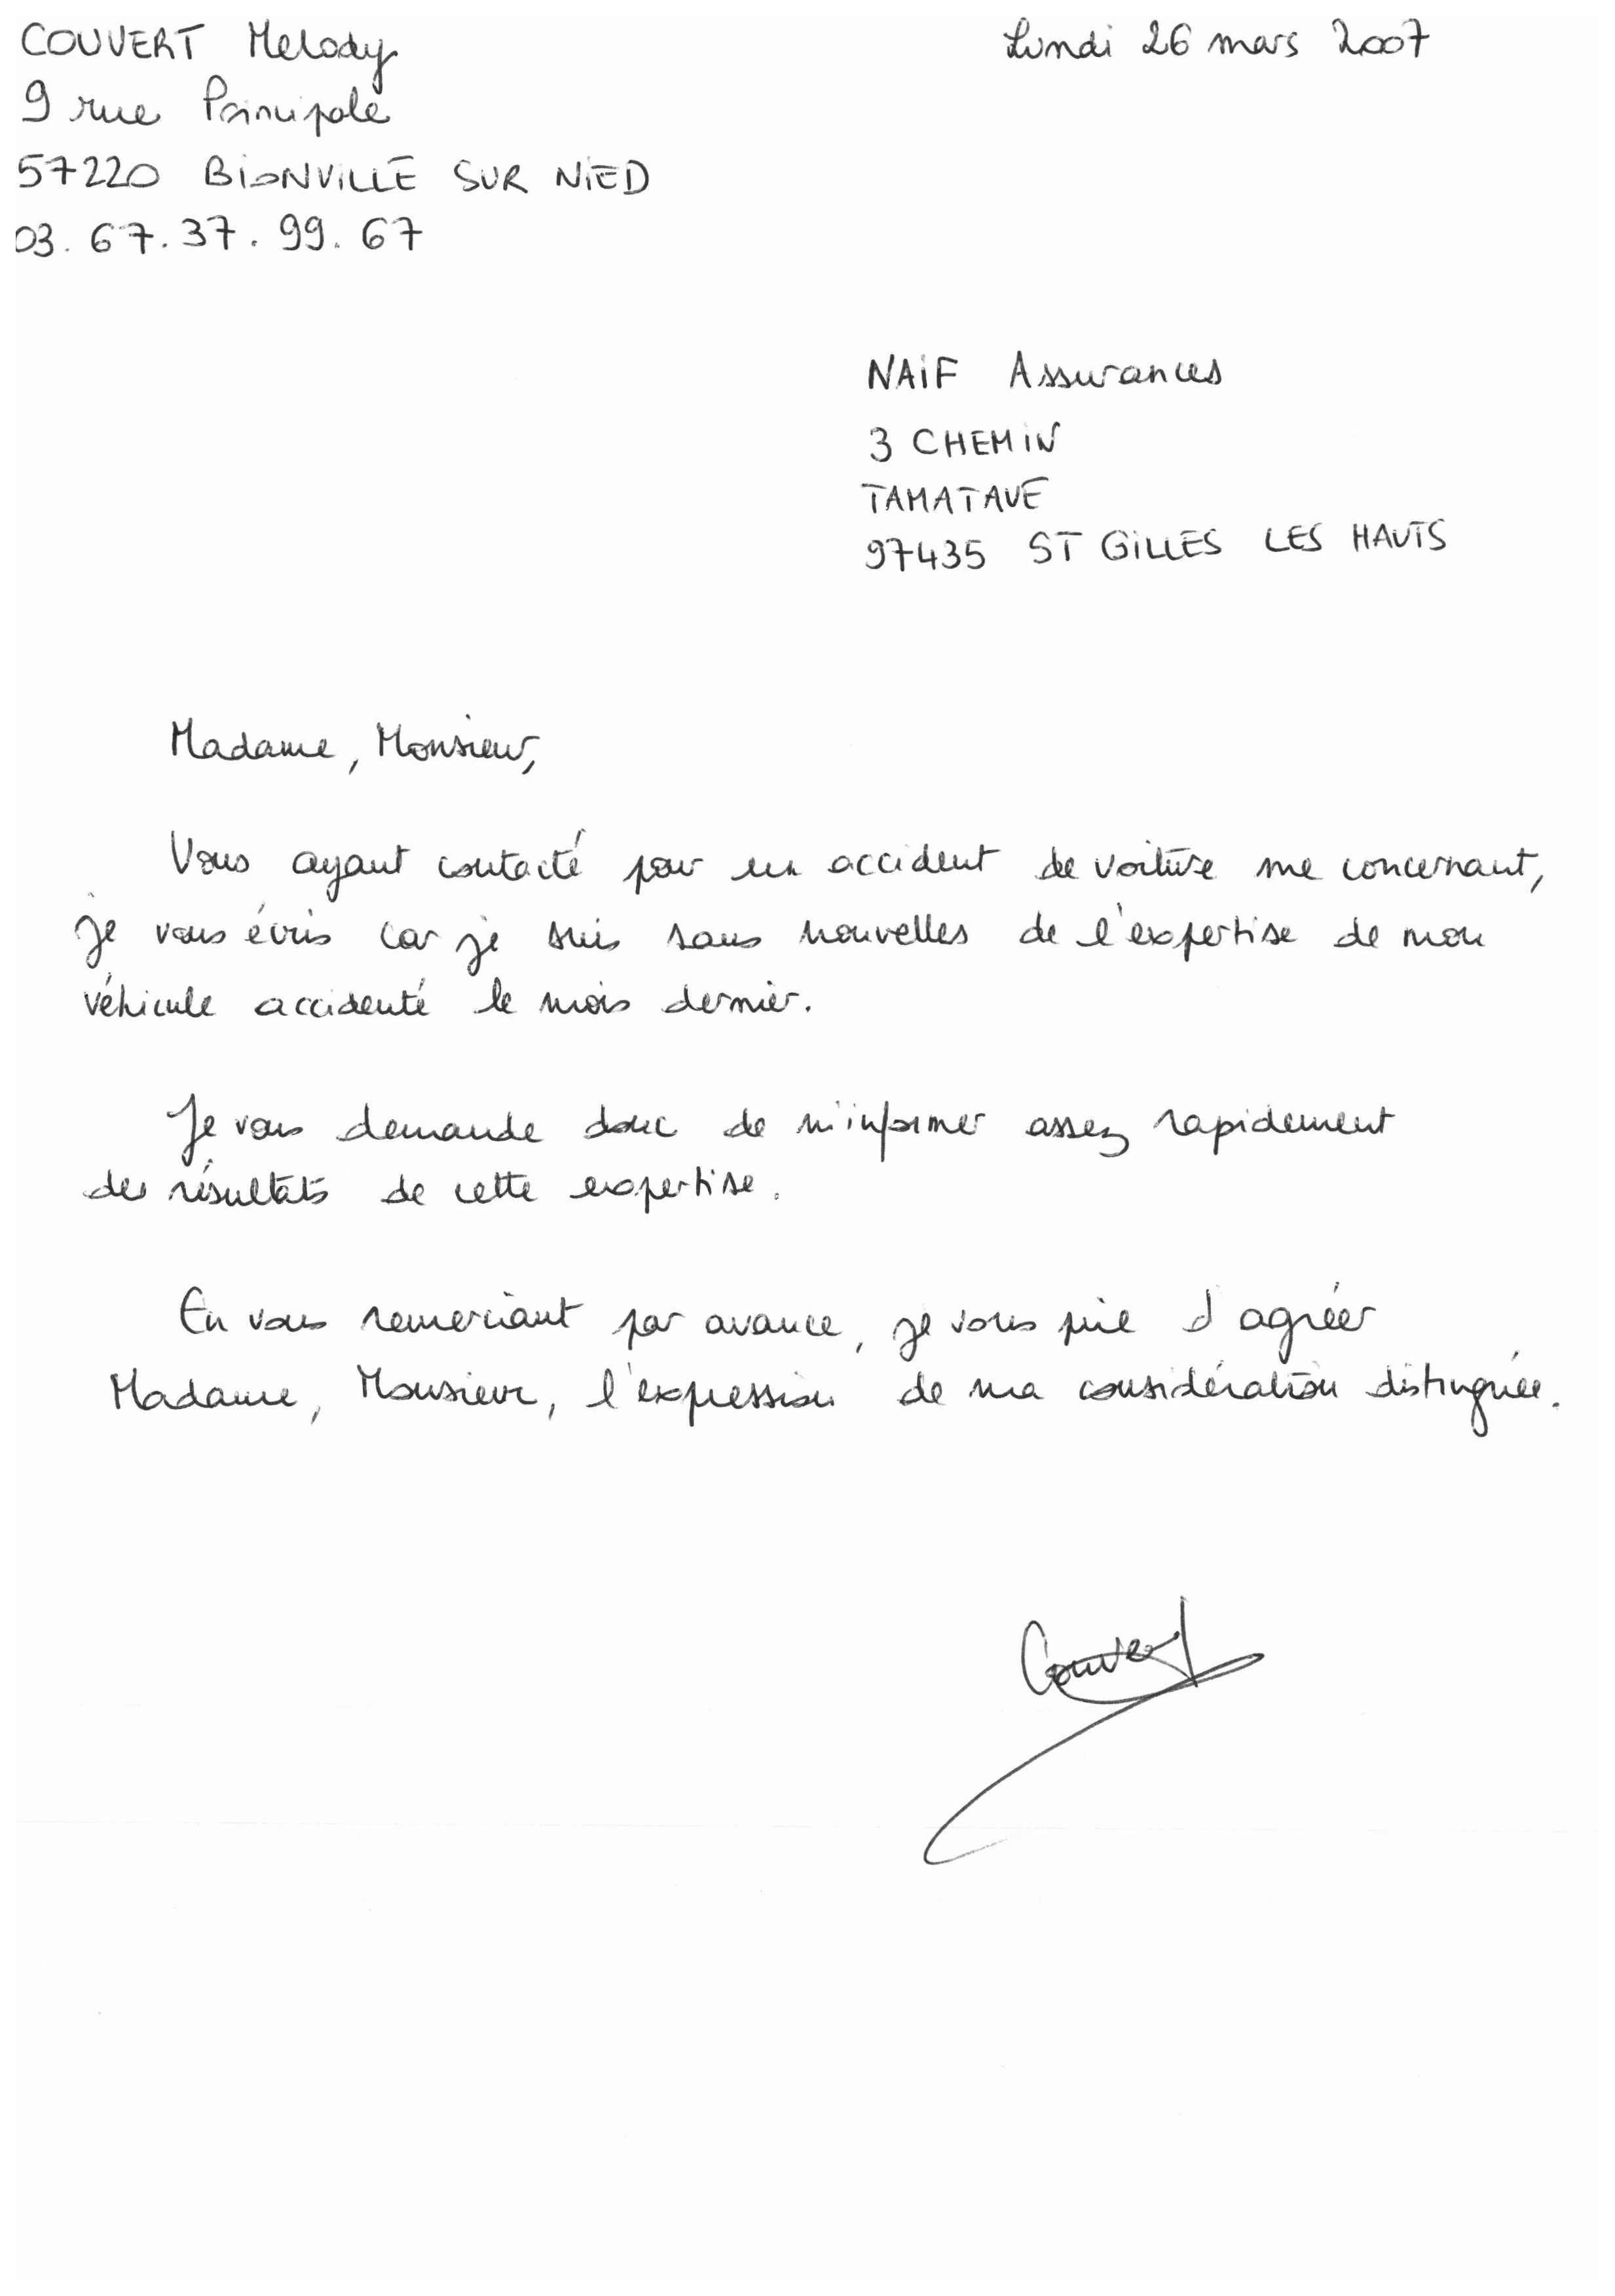 COUVERT Melody
9 rue Principale
57220 BIONVILLE SUR NIED
03.67.37.99.67
Lundi 26 mars 2007
NAIF Assurances
3 CHEMIN
TAMATAVE
97435 ST GILLES LES HAUTS
Madame, Monsieur,
Vous ayant contacté pour un accident de voiture me concernant,
je vous écris car je suis sans nouvelles de l'expertise de mon
véhicule accidenté le mois dernier.
Je vous demande donc de m'informer assez rapidement
des résultats de cette expertise.
En vous remerciant par avance, je vous prie d'agréer
Madame, Monsieur, l'expression de ma considération distinguée.
Couvert